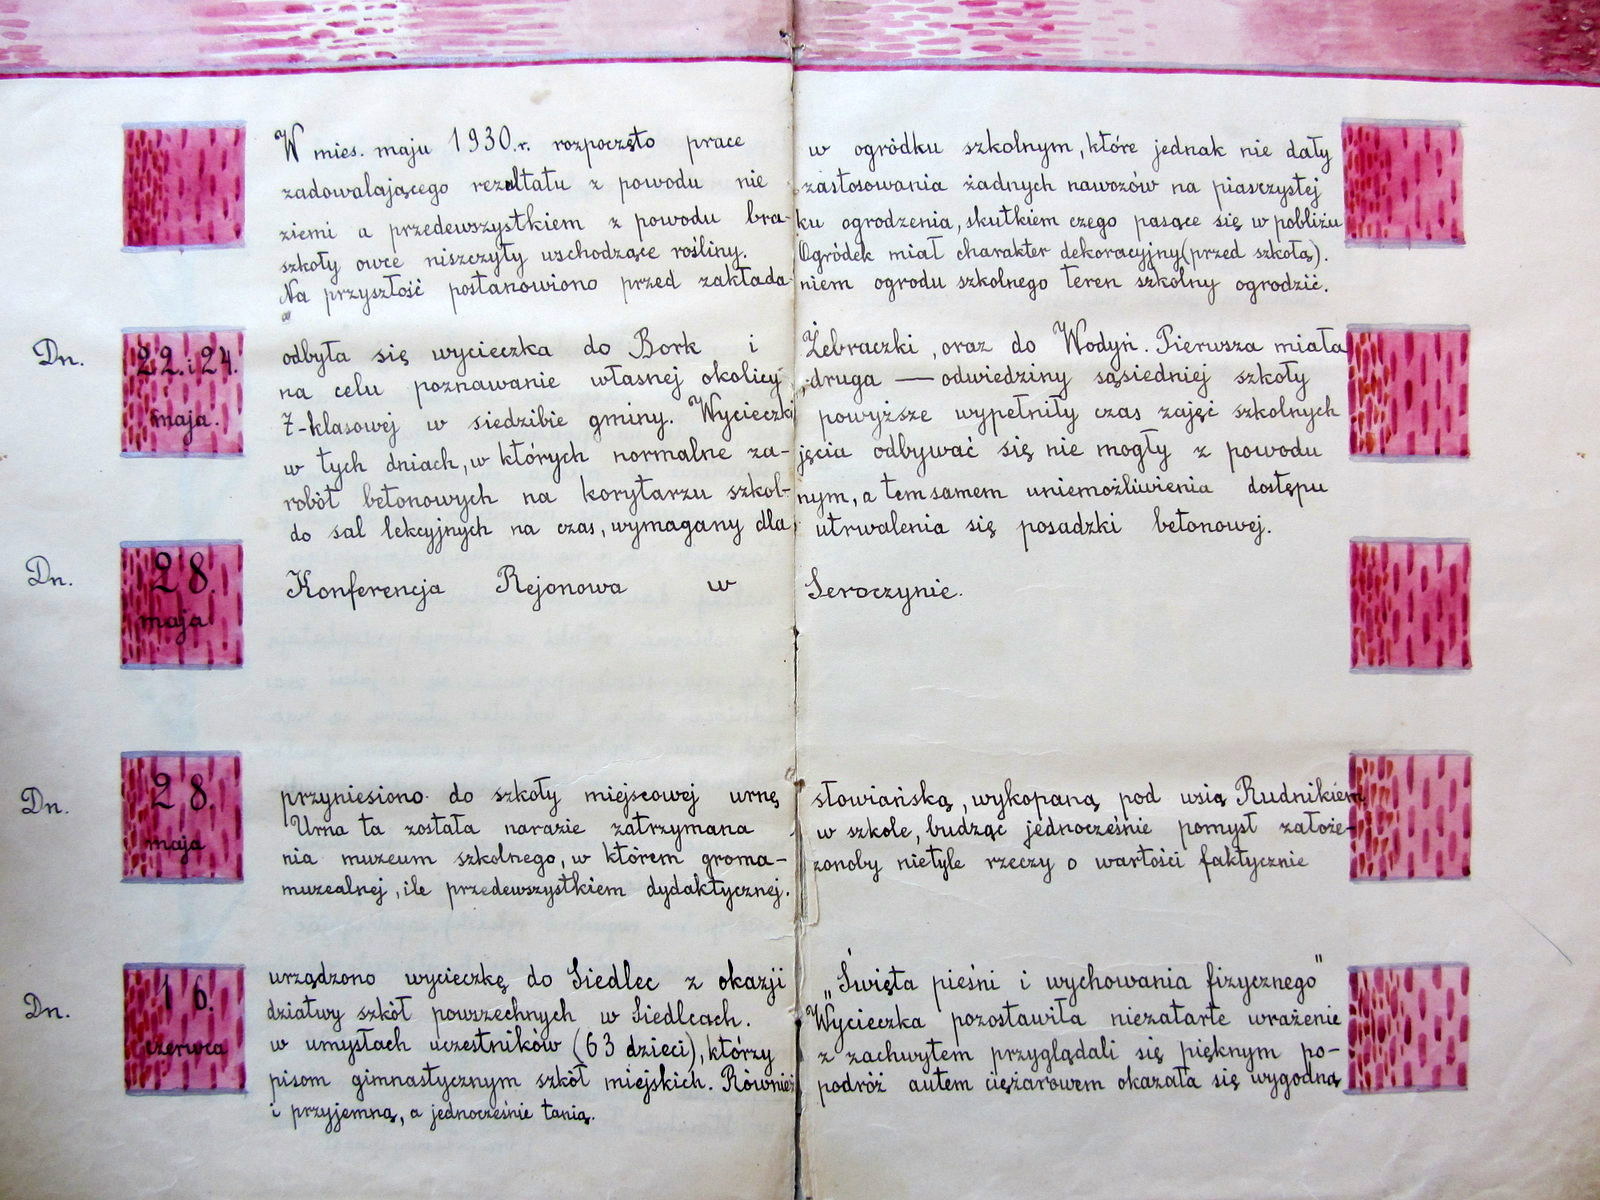 W mies. maju 1930.r. rozpoczęto prace w ogródku szkolnym, które jednak nie dały
zadowalającego rezultatu z powodu nie zastosowania żadnych nawozów na piaszczystej
ziemi a przedewszystkiem z powodu bra- ku ogrodzenia, skutkiem czego pasące się w pobliżu
szkoły owce niszczyły wschodzące rośliny. Ogródek miał charakter dekoracyjny (przed szkołą).
Na przyszłość postanowiono przed zakłada- niem ogrodu szkolnego teren szkolny ogrodzić.
Dn. 22. i 24. maja. odbyła się wycieczka do Bork i Żebraczki, oraz do Wodyń. Pierwsza miała
na celu poznawanie własnej okolicy, druga — odwiedziny sąsiedniej szkoły
7-klasowej w siedzibie gminy. Wycieczki powyższe wypełniły czas zajęć szkolnych
w tych dniach, w których normalne za- jęcia odbywać się nie mogły z powodu
robót betonowych na korytarzu szkol- nym, a tem samem uniemożliwienia dostępu
do sal lekcyjnych na czas, wymagany dla utrwalenia się posadzki betonowej.
Dn. 28. maja Konferencja Rejonowa w Seroczynie.
Dn. 28. maja przyniesiono do szkoły miejscowej urnę słowiańską, wykopaną pod wsią Rudnikiem
Urna ta została narazie zatrzymana w szkole, budząc jednocześnie pomysł założe-
nia muzeum szkolnego, w którem groma- zonoby nietyle rzeczy o wartości faktycznie
muzealnej, ile przedewszystkiem dydaktycznej.
Dn. 16. czerwca urządzono wycieczkę do Siedlec z okazji „Święta pieśni i wychowania fizycznego"
dziatwy szkół powszechnych w Siedlcach. Wycieczka pozostawiła niezatarte wrażenie
w umysłach uczestników (63 dzieci), którzy z zachwytem przyglądali się pięknym po-
pisom gimnastycznym szkół miejskich. Również podróż autem ciężarowem okazała się wygodną
i przyjemną, a jednocześnie tanią.